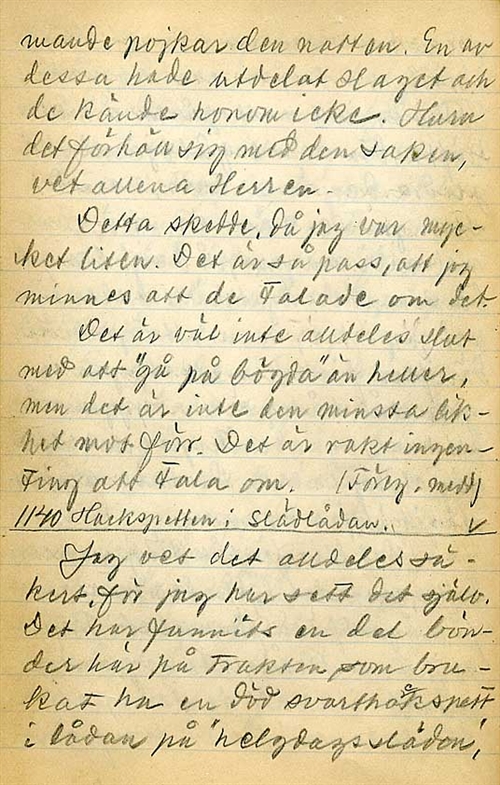 mande pojkar den natten. En av
dessa hade utdelat slaget och
de kände honom icke. Huru
det förhöll sig med den saken,
vet allena Herren.
Detta skedde, då jag var myc-
ket liten. Det är så pass, att jag
minnes att de talade om det.
Det är väl inte alldeles slut
med att "gå på bögda" än heller,
men det är inte den minsta lik-
het mot förr. Det är rakt ingen-
ting att tala om. (Förtg. medd)
1140 Hackspetten i slädlådan. √
Jag vet det alldeles sä-
kert, för jag har sett det själv.
Det har funnits en del bön-
der här på trakten som bru-
kat ha en död svarthåkspett
i lådan på "helgdagssläden",